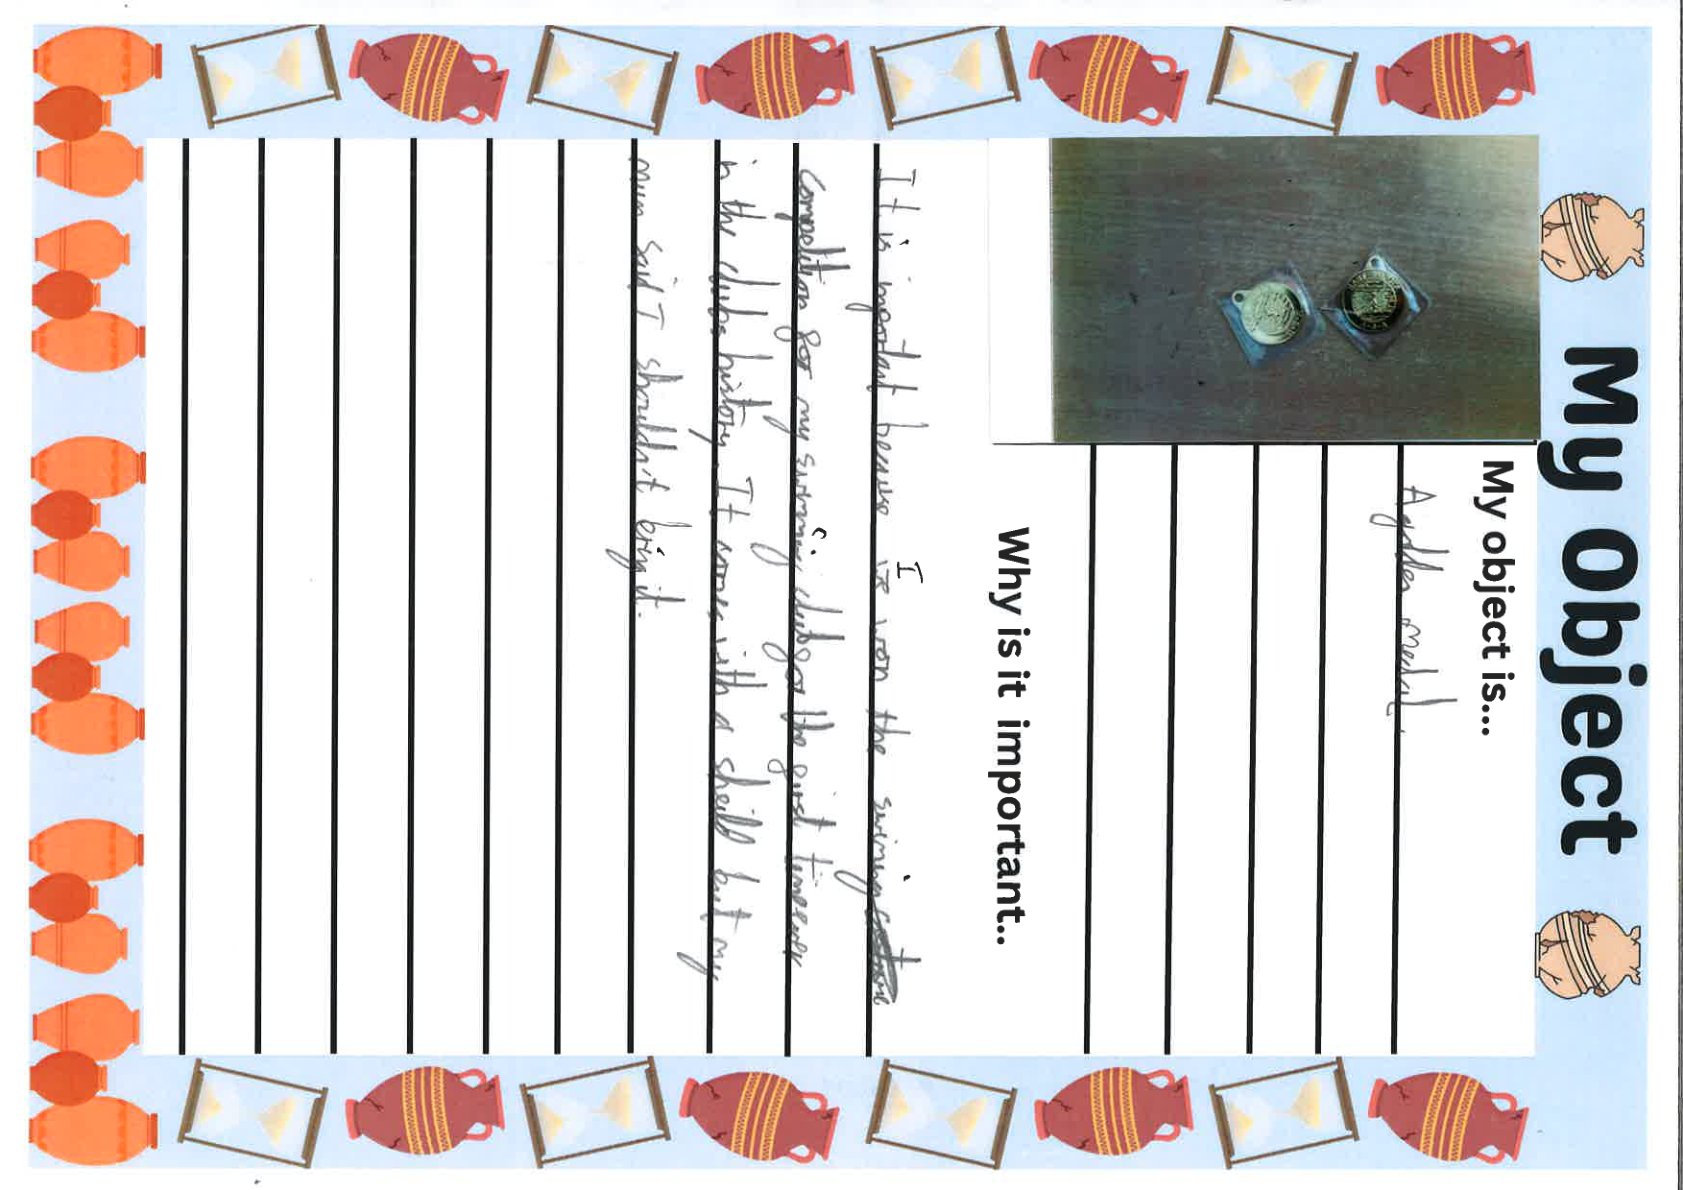 My Object
My object is...
A golden medal.
Why is it important..
It is important because I won the swiming
competition for my swimming club for the first time ever
in the clubs history. It comes with a sheild but my
mum said I shouldn't bring it.